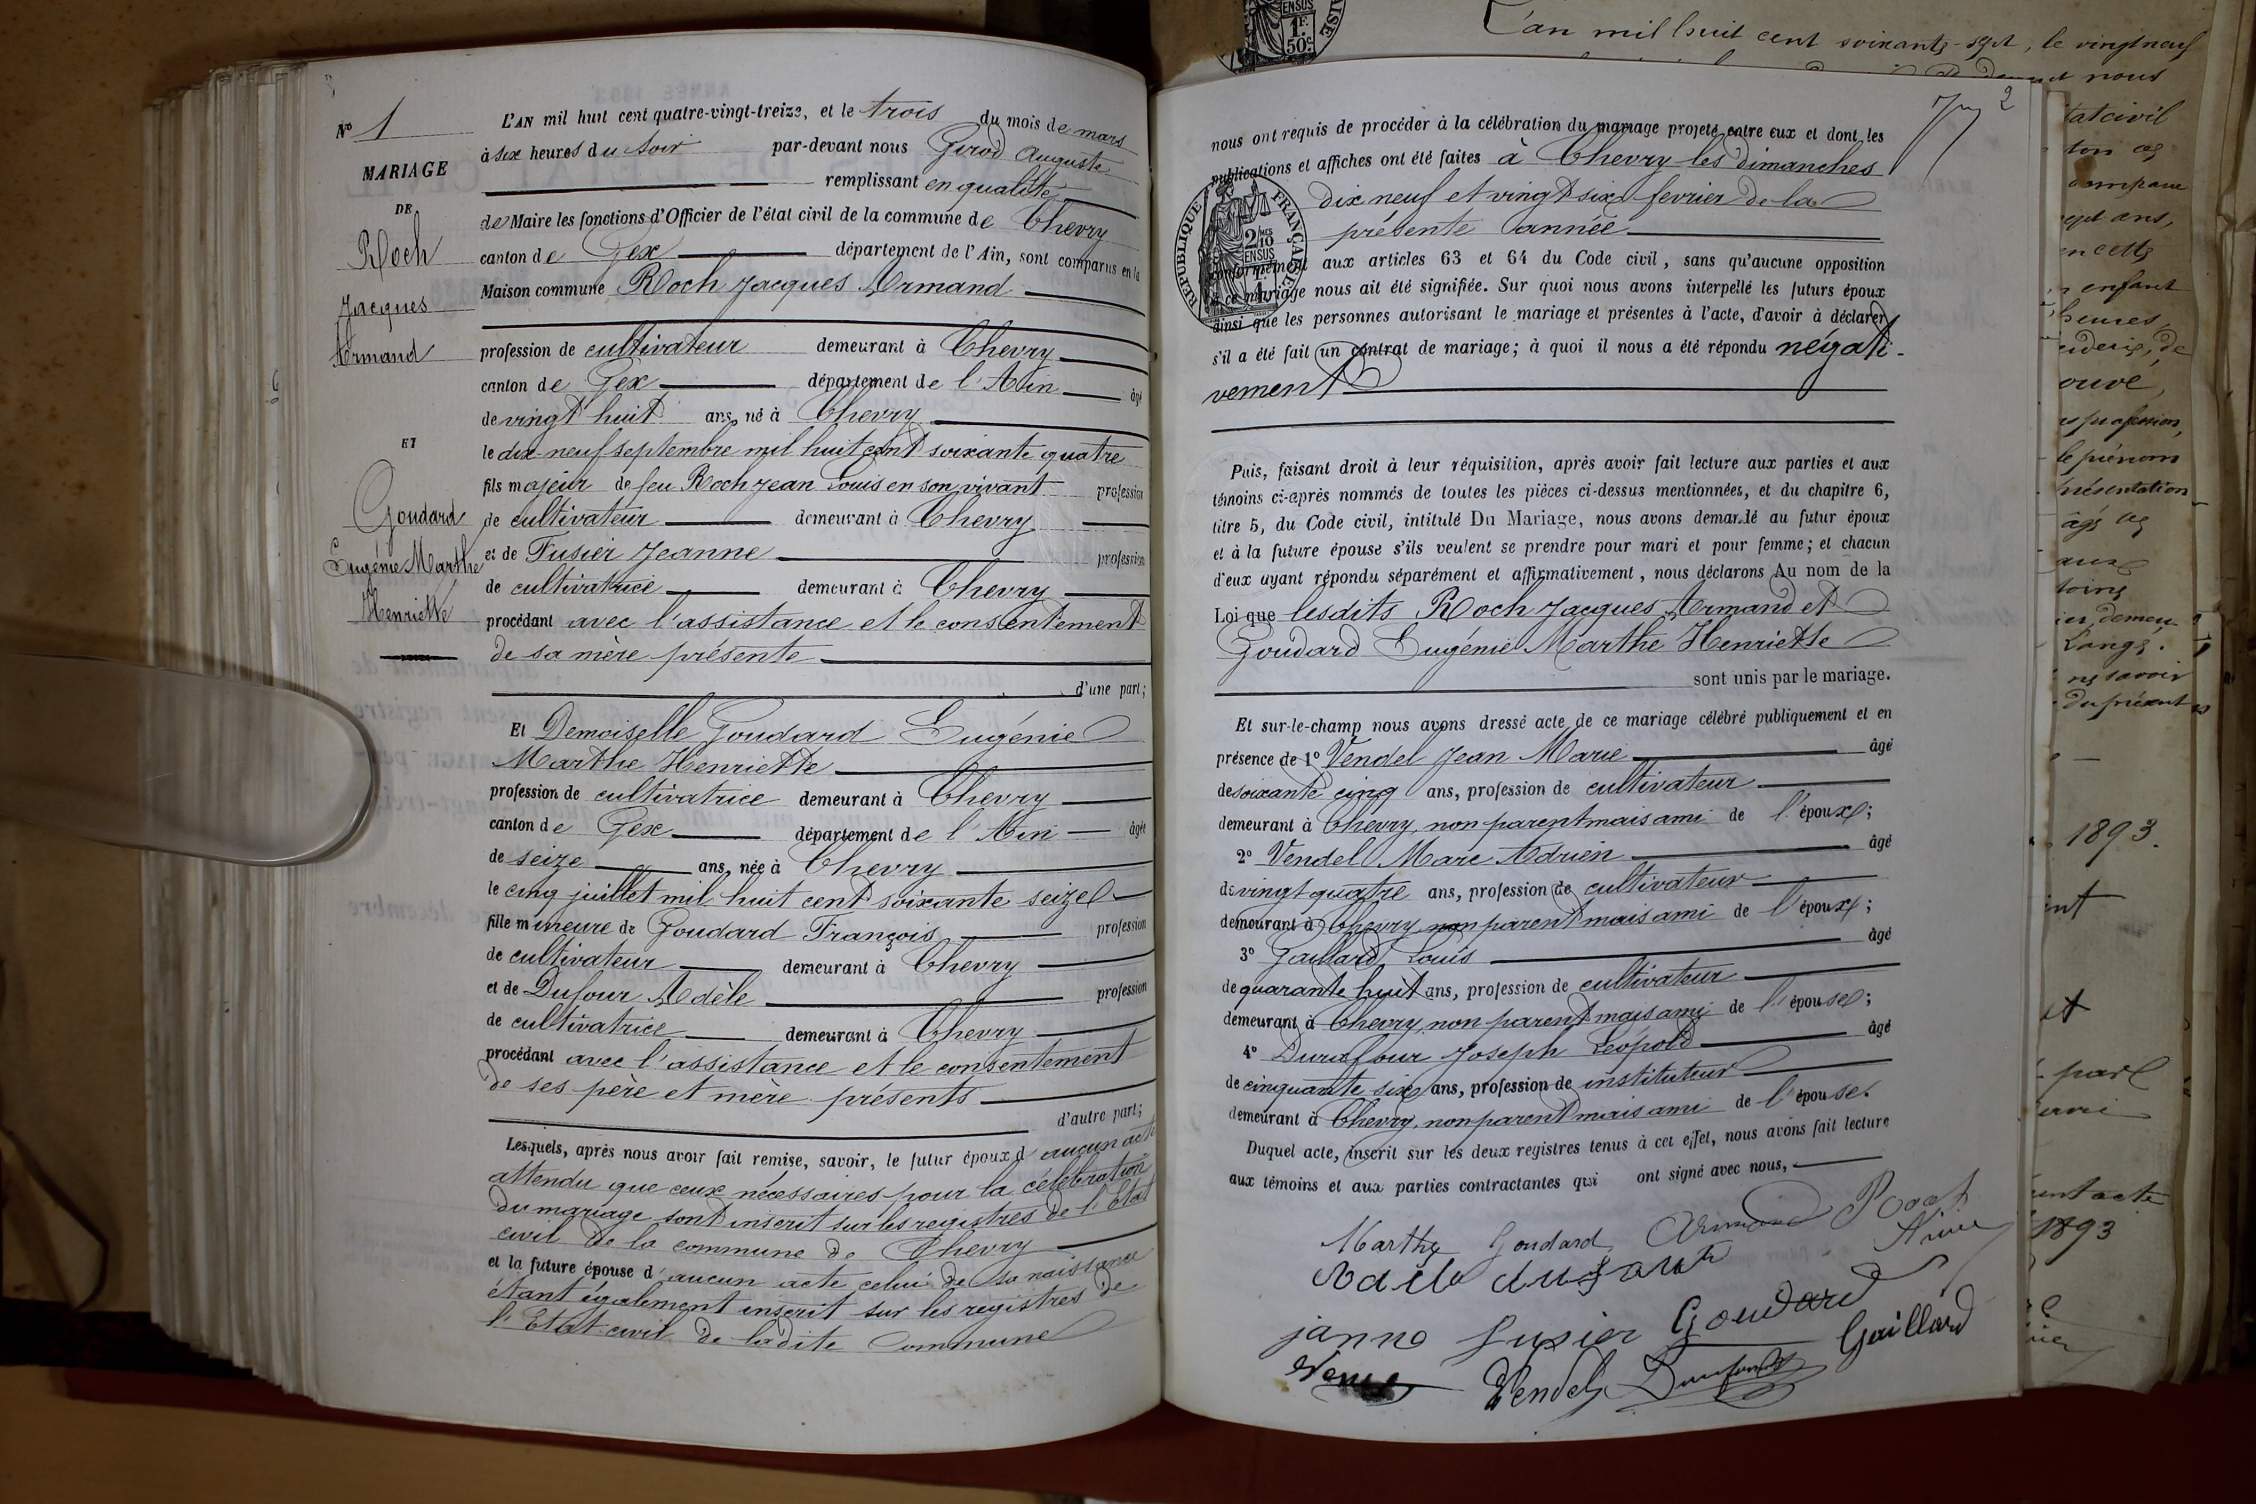 N° 1
MARIAGE
DE
Roch
Jacques
Armand
ET
Goudard
Eugénie Marthe
Henriette
L'AN mil huit cent quatre-vingt-treize, et le trois du mois de mars
à six heures du soir par-devant nous Girod Auguste
remplissant en qualité
de Maire les fonctions d'Officier de l'état civil de la commune de Chevry
canton de Gex département de l'Ain, sont comparus en la
Maison commune Roch Jacques Armand
profession de cultivateur demeurant à Chevry
canton de Gex département de l'Ain âgé
de vingt huit ans, né à Chevry
le dix-neuf septembre mil huit cent soixante quatre
fils majeur de feu Roch Jean Louis en son vivant profession
de cultivateur demeurant à Chevry
et de Fusier Jeanne profession
de cultivatrice demeurant à Chevry
procédant avec l'assistance et le consentement
de sa mère présente
d'une part;
Et Demoiselle Goudard Eugénie
Marthe Henriette
profession de cultivatrice demeurant à Chevry
canton de Gex département de l'Ain âgée
de seize ans, née à Chevry
le cinq juillet mil huit cent soixante seize
fille mineure de Goudard François profession
de cultivateur demeurant à Chevry
et de Dufour Adèle profession
de cultivatrice demeurant à Chevry
procédant avec l'assistance et le consentement
de ses père et mère présents
d'autre part;
Lesquels, après nous avoir fait remise, savoir, le futur époux d'aucun acte
attendu que ceux nécessaires pour la célébration
du mariage sont inscrit sur les registres de l'Etat
civil de la commune de Chevry
et la future épouse d'aucun acte celui de sa naissance
étant également inscrit sur les registres de
l'Etat-civil de la dite commune
2
nous ont requis de procéder à la célébration du mariage projeté entre eux et dont les
publications et affiches ont été faites à Chevry les dimanches
dix neuf et vingt six fevrier de la
présente année
conformément aux articles 63 et 64 du Code civil, sans qu'aucune opposition
à ce mariage nous ait été signifiée. Sur quoi nous avons interpellé les futurs époux
ainsi que les personnes autorisant le mariage et présentes à l'acte, d'avoir à déclarer
s'il a été fait un contrat de mariage; à quoi il nous a été répondu négati-
vement
RÉPUBLIQUE FRANÇAISE
2/10
EN SUS
Puis, faisant droit à leur réquisition, après avoir fait lecture aux parties et aux
témoins ci-après nommés de toutes les pièces ci-dessus mentionnées, et du chapitre 6,
titre 5, du Code civil, intitulé Du Mariage, nous avons demandé au futur époux
et à la future épouse s'ils veulent se prendre pour mari et pour femme; et chacun
d'eux ayant répondu séparément et affirmativement, nous déclarons Au nom de la
Loi que lesdits Roch Jacques Armand et
Goudard Eugénie Marthe Henriette
sont unis par le mariage.
Et sur-le-champ nous avons dressé acte de ce mariage célébré publiquement et en
présence de 1° Vendel Jean Marie âgé
de soixante cinq ans, profession de cultivateur
demeurant à Chevry, non parent mais ami de l'époux;
2° Vendel Marc Adrien âgé
de vingt quatre ans, profession de cultivateur
demeurant à Chevry non parent mais ami de l'époux;
3° Gaillard Louis âgé
de quarante huit ans, profession de cultivateur
demeurant à Chevry, non parent mais ami de l'épouse;
4° Durafour Joseph Léopold âgé
de cinquante six ans, profession de instituteur
demeurant à Chevry, non parent mais ami de l'épouse.
Duquel acte, inscrit sur les deux registres tenus à cet effet, nous avons fait lecture
aux témoins et aux parties contractantes qui ont signé avec nous,
Marthe Goudard Armand Roch
Adele dufour
janne fusier Goudard
Vendel Gaillard
L'an mil huit cent soixante-sept, le vingt neuf
nous
1893.
1893